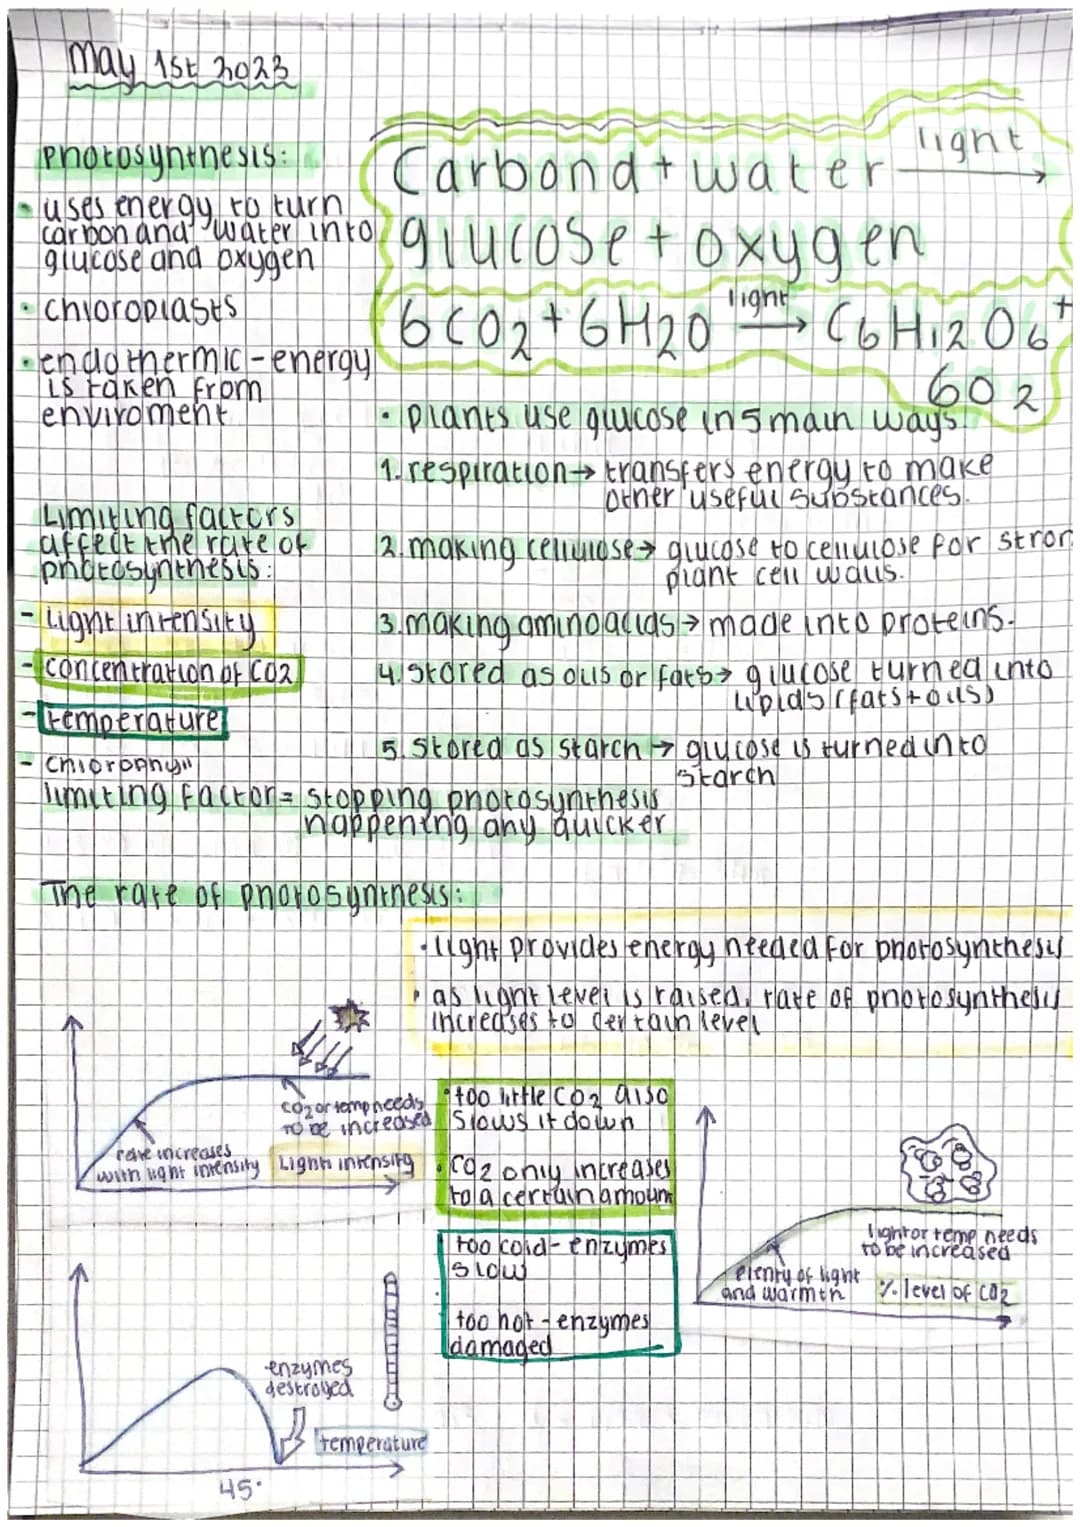 May 1st 2023
photosynthesis:
• uses energy to turn
carbon and water into
glucose and oxygen
• chloroplasts
• endothermic - energy
is taken from
enviroment
Carbond + water light →
glucose + oxygen
6CO2 + 6H2O light → C6H12O6 +
6O2
• plants use glucose in 5 main ways.
1. respiration → transfers energy to make
other useful substances.
2. making cellulose → glucose to cellulose for stron
plant cell walls.
3. making amino acids → made into proteins.
4. stored as oils or fats → glucose turned into
lipids (fats + oils)
5. stored as starch → glucose is turned into
starch
Limiting factors
affect the rate of
photosynthesis:
- light intensity
- concentration of CO2
- temperature
- chlorophyll
limiting factor = stopping photosynthesis
happening any quicker
The rate of photosynthesis:
• light provides energy needed for photosynthesis
• as light level is raised, rate of photosynthesis
increases to certain level
CO2 or temp needs
to be increased
rate increases
with light intensity
Light intensity
• too little CO2 also
slows it down
• CO2 only increases
to a certain amount
too cold - enzymes
slow
too hot - enzymes
damaged
light or temp needs
to be increased
plenty of light
and warmth
% level of CO2
enzymes
destroyed
temperature
45°